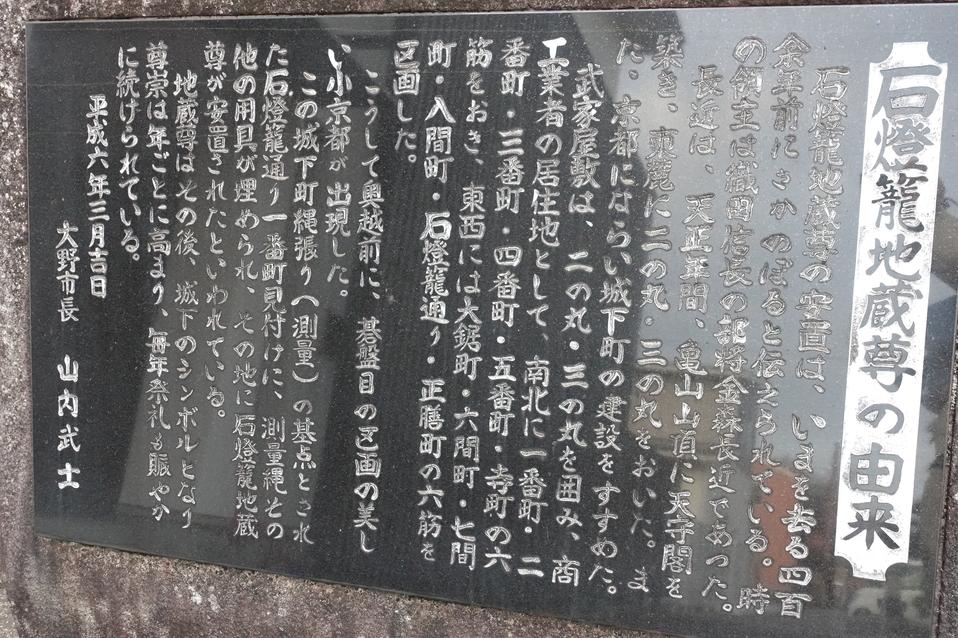 石燈籠地蔵尊の由来
石燈籠地蔵尊の安置は、いまを去る四百
余年前にさかのぼると伝えられている。時
の領主は織田信長の部将金森長近であった。
長近は、天正年間、亀山山頂に天守閣を
築き、東麓に二の丸・三の丸をおいた。ま
た、京都にならい城下町の建設をすすめた。
武家屋敷は、二の丸・三の丸を囲み、商
工業者の居住地として、南北に一番町・二
番町・三番町・四番町・五番町・寺町の六
筋をおき、東西には大鋸町・六間町・七間
町・八間町・石燈籠通り・正膳町の六筋を
区画した。
こうして奥越前に、碁盤目の区画の美し
い小京都が出現した。
この城下町縄張り(測量)の基点とされ
た石燈籠通り一番町見付けに、測量縄その
他の用具が埋められ、その地に石燈籠地蔵
尊が安置されたといわれている。
地蔵尊はその後、城下のシンボルとなり
尊崇は年ごとに高まり、毎年祭礼も賑やか
に続けられている。
平成六年三月吉日
大野市長 山内武士